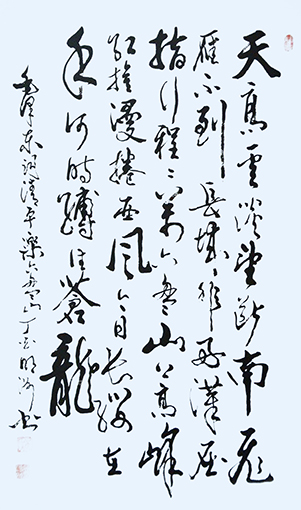 天高雲淡望斷南飛
雁不到長城非好漢屈
指行程二萬六盤山上高峰
紅旗漫捲西風今日長纓在
手何時縛住蒼龍
毛澤東詞清平樂六盤山丁酉明